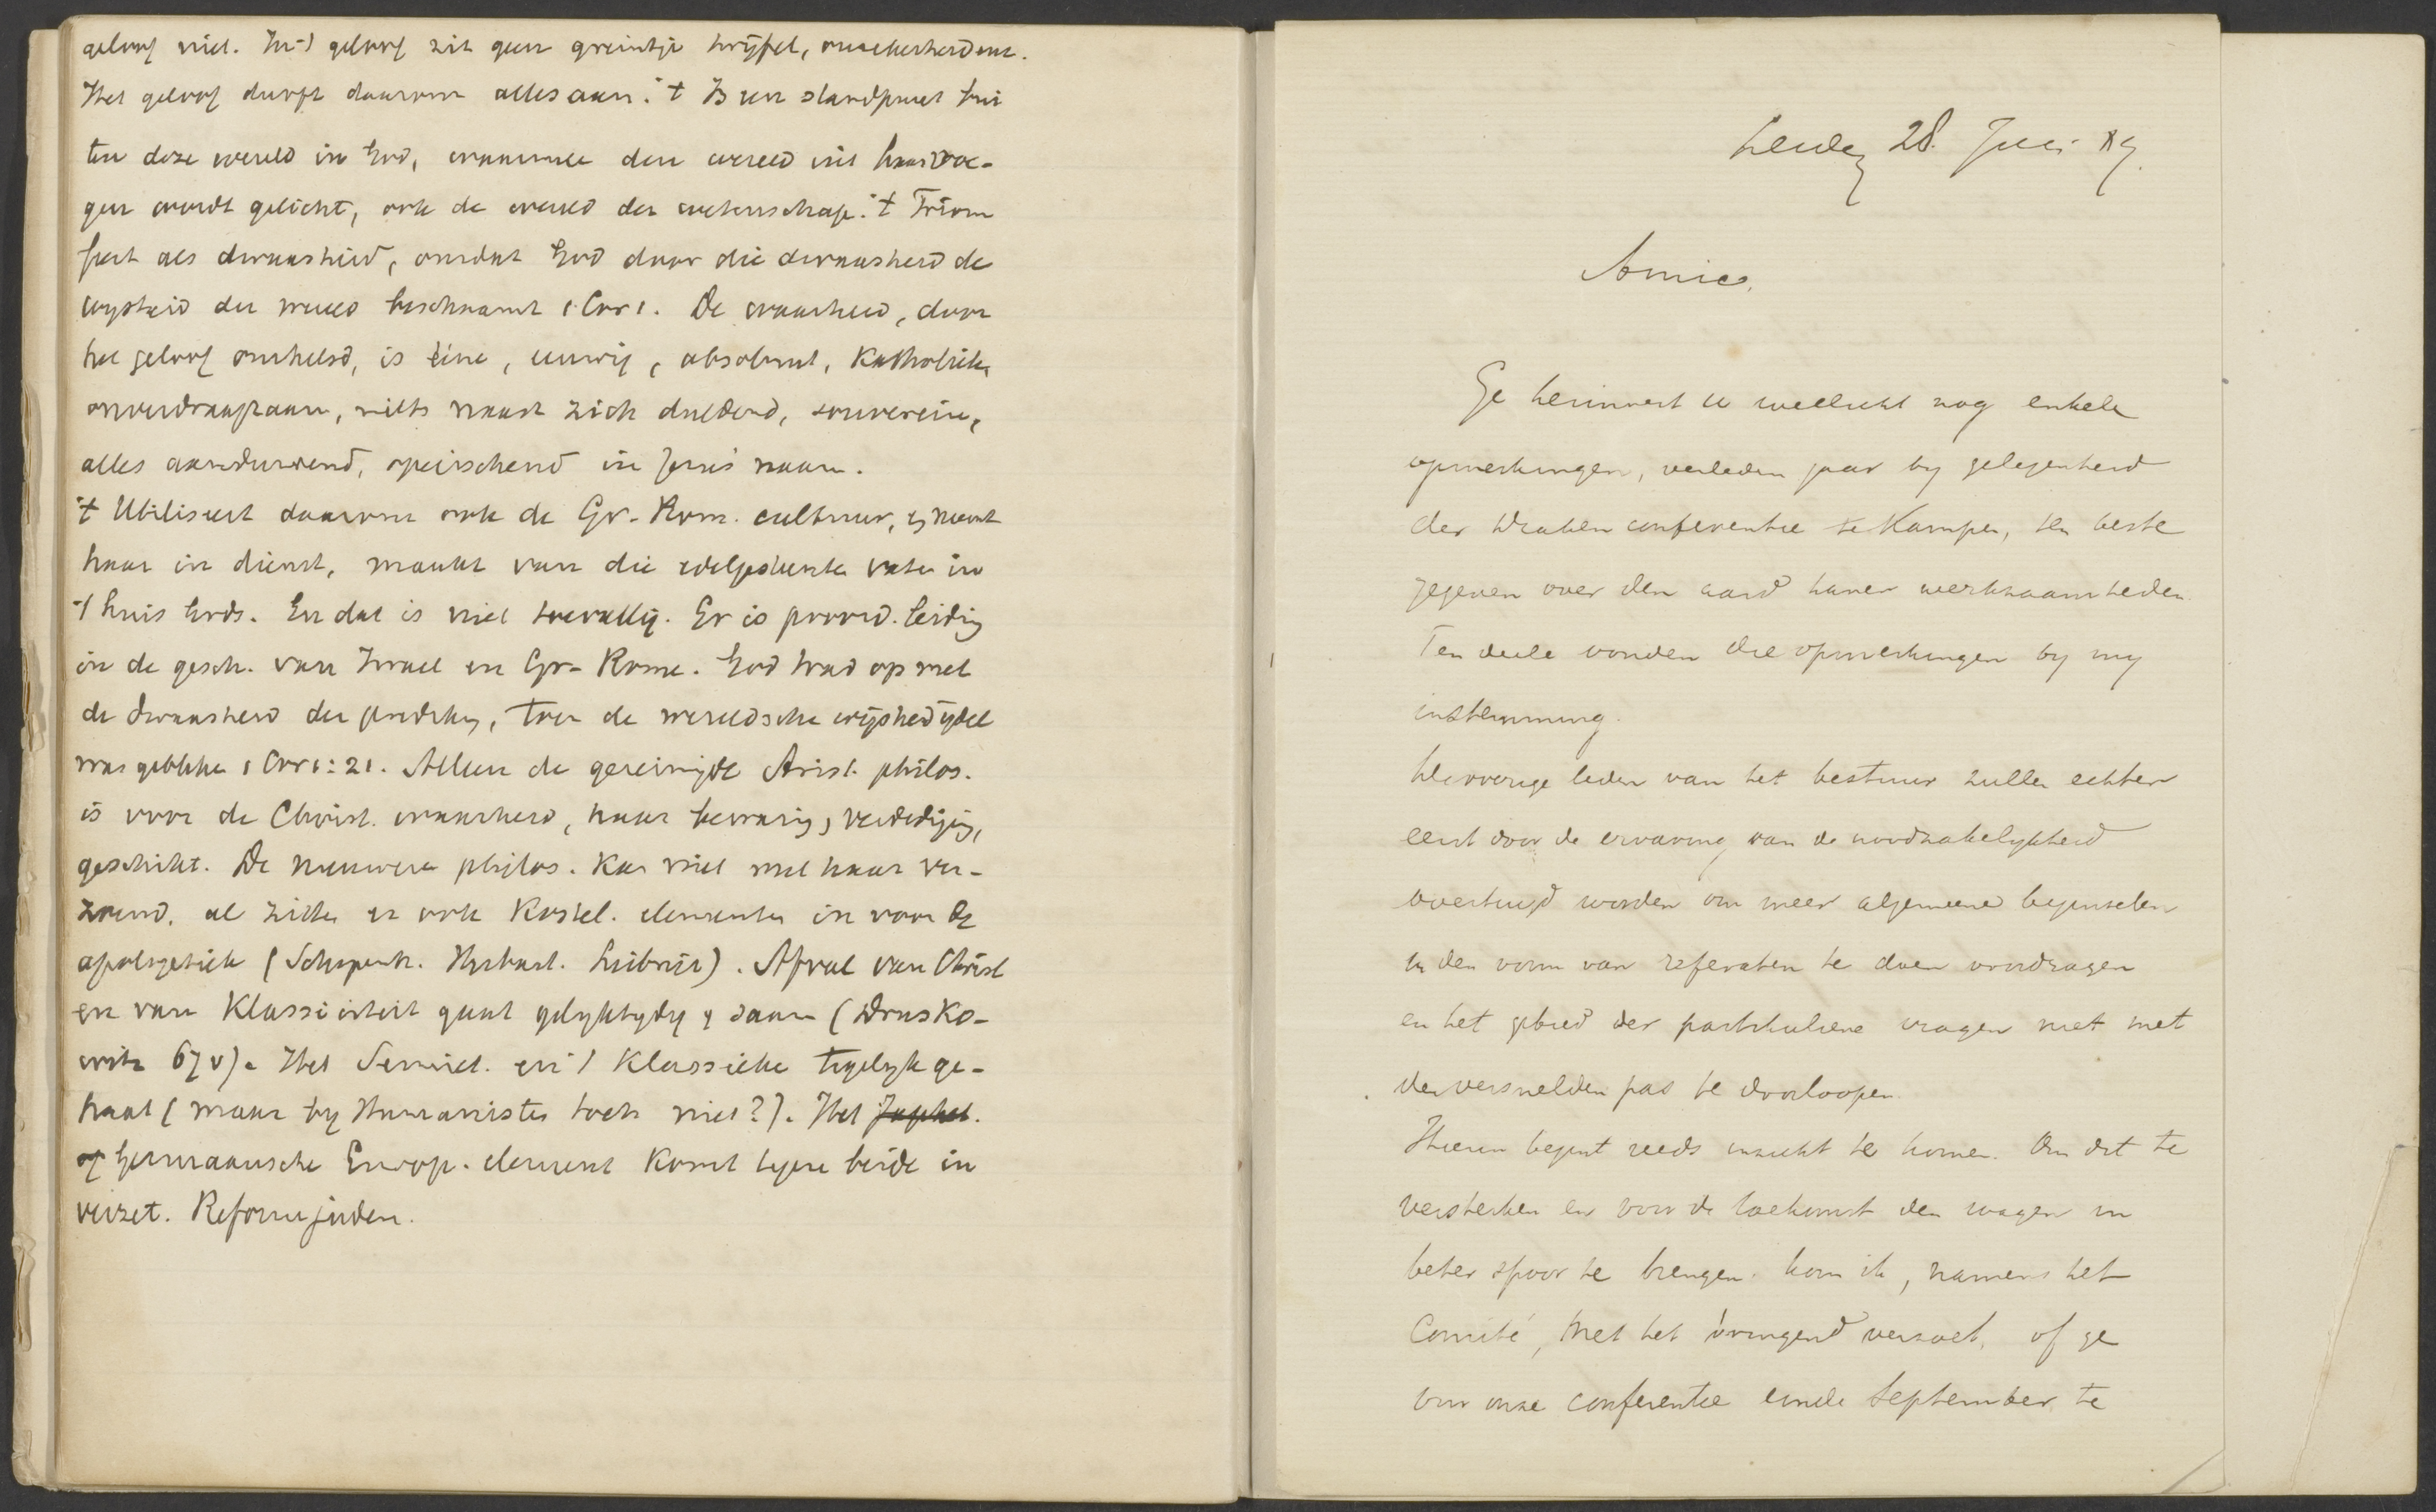 geloof niet. In 't geloof zit geen greintje twijfel, onzekerheid enz.
Het geloof durft daarom alles aan. 't Is een standpunt bui
ten deze wereld in God, waarmede deze wereld uit haar voe-
gen wordt gelicht, ook de wereld der wetenschap. 't Triom
feert als dwaasheid, omdat God door die dwaasheid de
wysheid der wereld beschaamt 1 Cor 1. De waarheid, door
het geloof omhelsd, is ééne, eeuwig, absoluut, Katholiek,
onverdraagzaam, niets naast zich duldend, souverein,
alles aandurvend, opeischend in Jezus' naam.
't Utiliseert daarom ook de Gr-Rom. cultuur, en neemt
haar in dienst, maakt van die edelgesteente vaten in
't huis Gods. En dat is niet toevallig. Er is provid. leiding
in de gesch. van Israel en Gr-Rome. God trad op met
de dwaasheid der prediking, toen de wereldsche wijsheid ijdel
was gebleken 1 Cor 1:21. Alleen de gereinigde Arist. philos.
is voor de Christ. waarheid, haar bewaring, verdediging,
geschikt. De nieuwere philos. kan niet met haar ver-
zoend, al zitten er ook kostel. elementen in voor de
apologetiek (Schopenh. Herbart. Leibniz). Afval van Christ
en van Klassiciteit gaat gelyktydig saam (Drusko-
witz 67 v). Het Semiet. en 't Klassieke tegelyk ge-
haat (maar by Humanisten toch niet?). Het Japhet.
of Germaansche Europ. element komt tegen beide in
verzet. Reformjuden.
Leiden 28 Juni 89.
Amice,
Ge herinnert u wellicht nog enkele
opmerkingen, verleden jaar by gelegenheid
der conferentie te Kampen, ten beste
gegeven over den aard harer werkzaamheden.
Ten deele vonden die opmerkingen by my
instemming.
leden van het bestuur zullen echter
eerst door de ervaring van de noodzakelykheid
overtuigd worden om meer algemeene beginselen
in den vorm van referaten te doen voordragen
en het gebied der partikuliere vragen niet met
den versnelden pas te doorloopen.
Hierin begint reeds inzicht te komen. Om dit te
versterken en voor de toekomst den wagen in
beter spoor te brengen, kom ik, namens het
Comité, met het dringend verzoek, of ge
voor onze conferentie einde September te